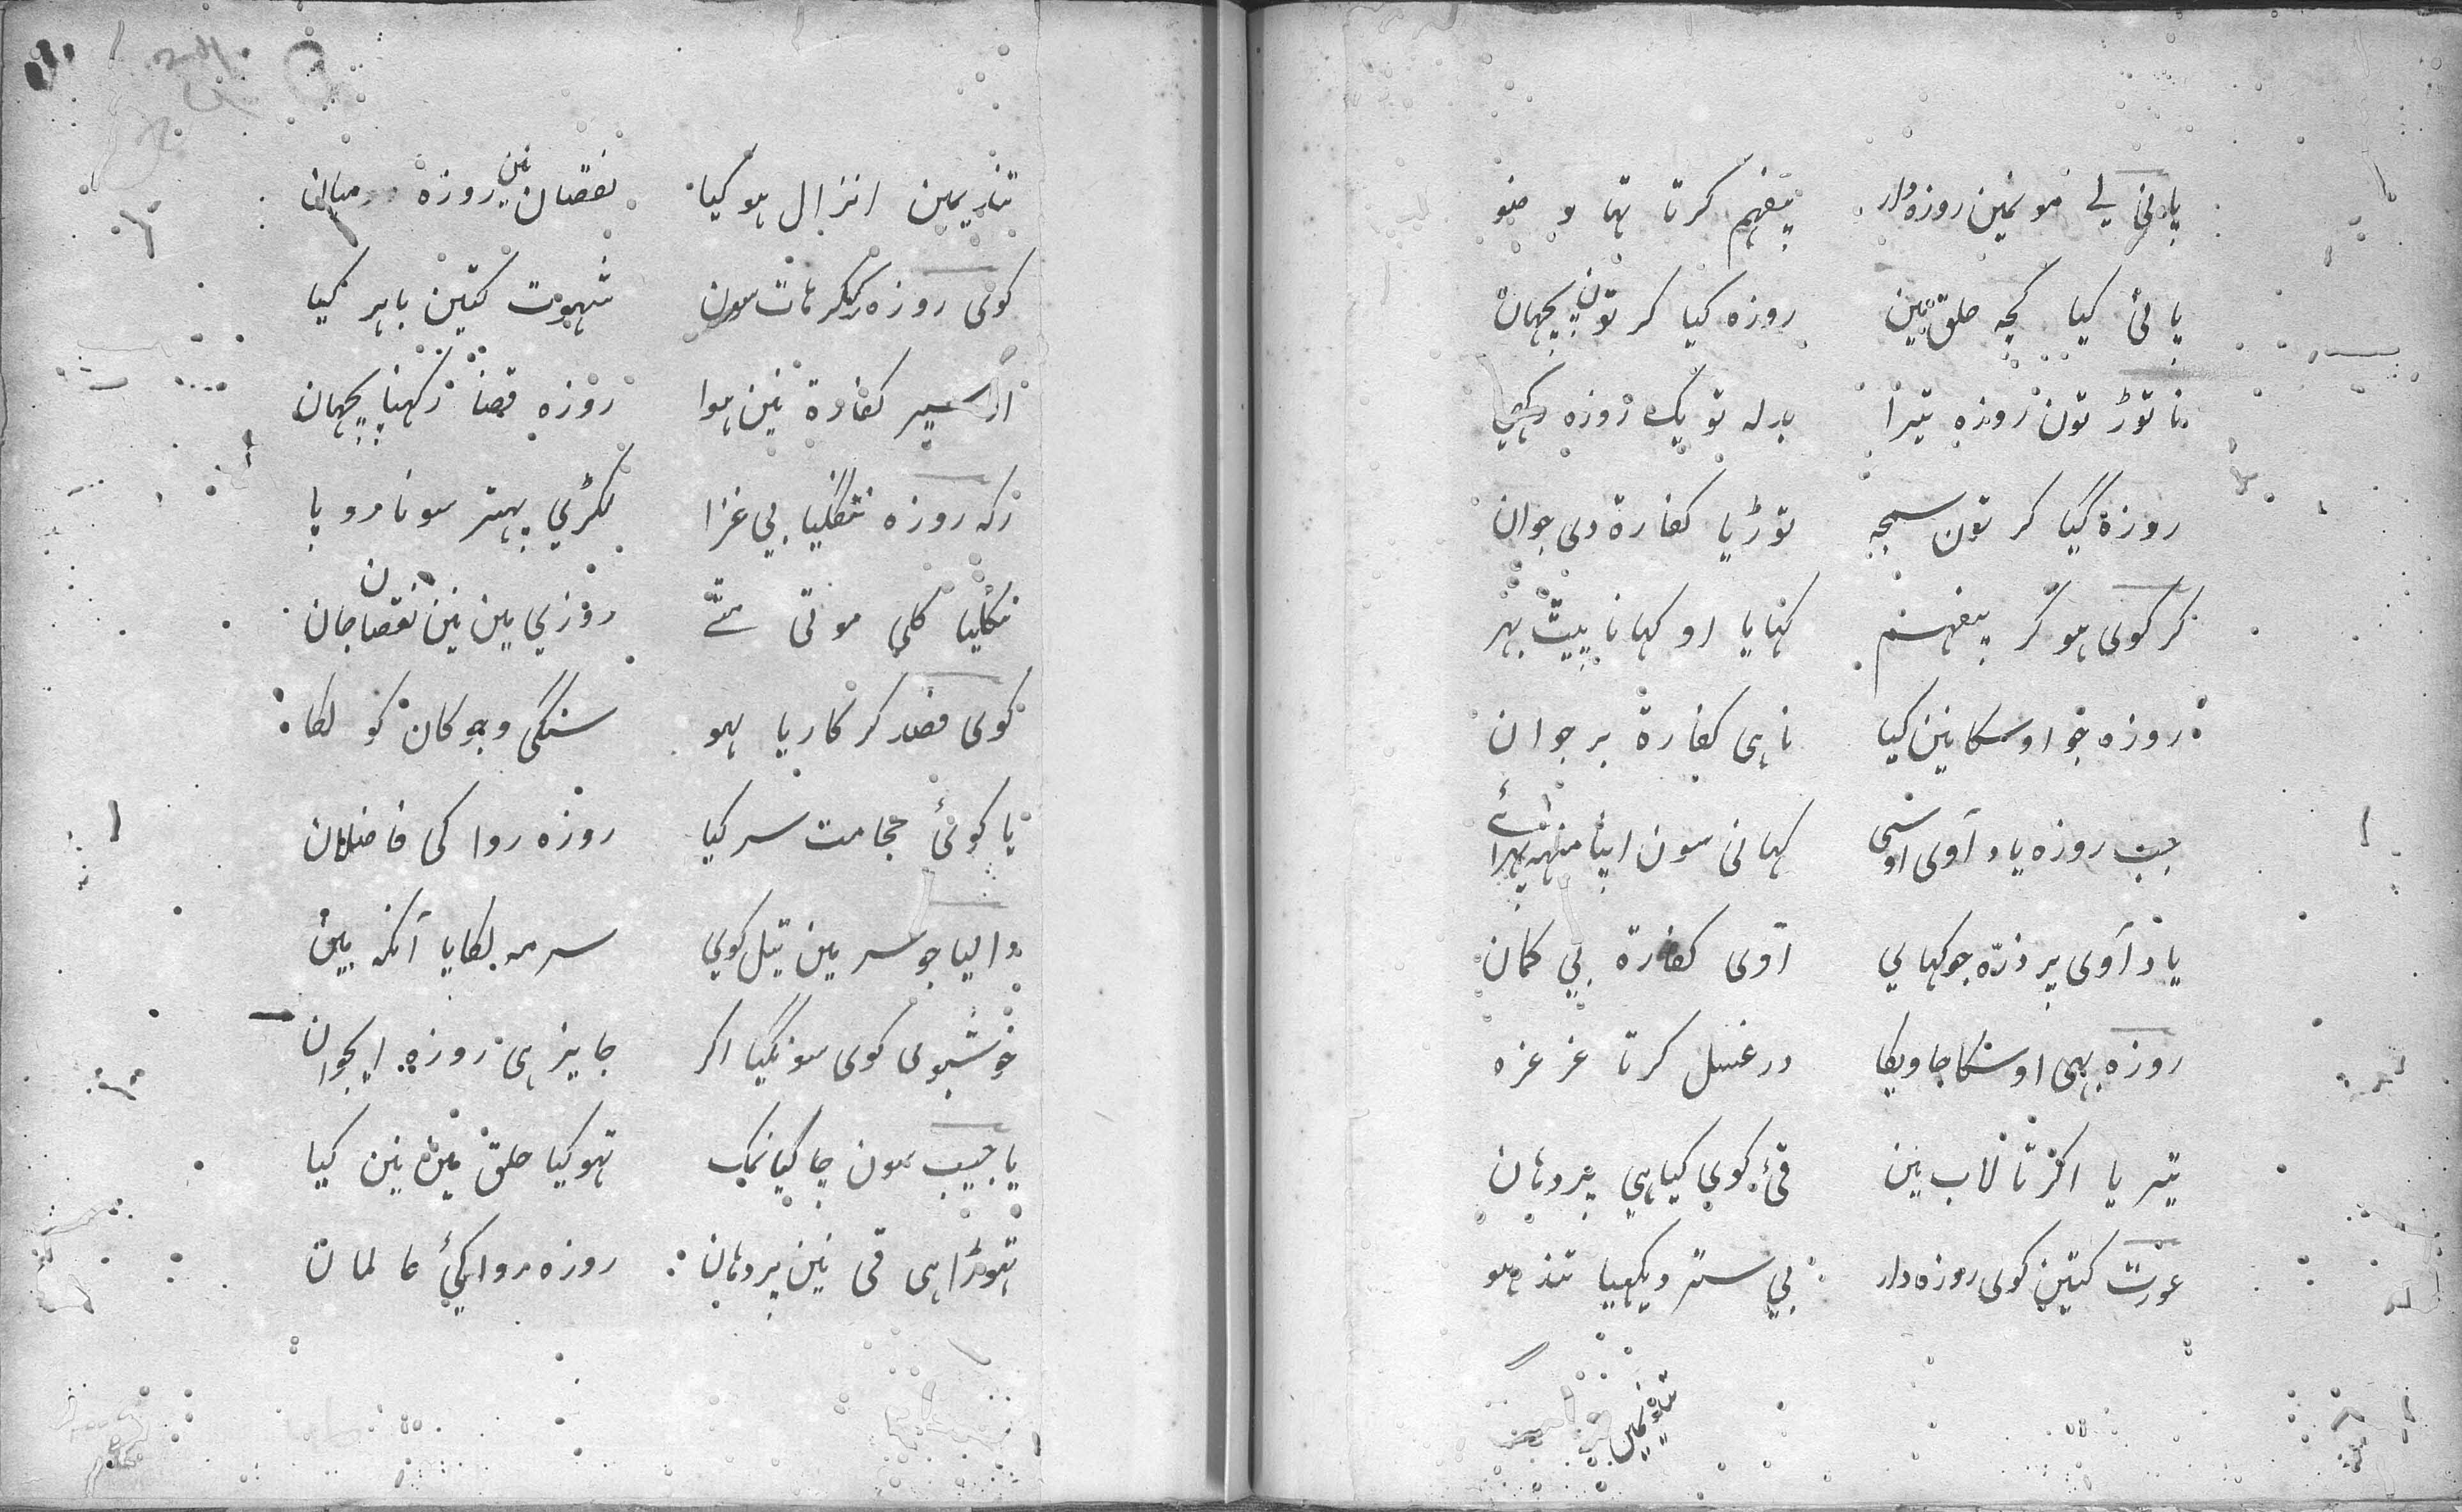 پانی لے مونمین روزہ دار بیفہم کرتا تہا وضو
پانی کیا کچہ حلق مین روزہ کیا کر تون پچہان
نا توڑ تون روزہ تیرا بدلہ تو یک روزہ
روزہ گیا کر تون سمجہ توڑیا کفارۃ دی جوان
کر کوی ہو کر بیفہم کہایا او کہانا پیٹ بہر
روزہ جو اوسکا نین کیا نا ہی کفارۃ بر جوان
جب روزہ یاد آوی اوسی کہانی سون اپنا منہہ
یاد آوی پر ذرّہ جو کہای آوی کفارۃ بی کمان
روزہ بہی اوسکا جاویکا در غسل کرتا غرغرہ
تیر یا اکر تالاب نین قی کوی کیا ہی پردہان
عورت کتین کوی روزہ دار بی ستر دیکہیا تند ہو
تنادیمین
تنادیمین انزال ہو کیا نقصان نین روزہ میان
کوی روزہ رکہکر ہات سون شہوت کتین باہر کیا
اکسیر کفارۃ نین ہوا روزہ قضا رکہنا پچہان
رکہ روزہ نکلیا بی غذا لکڑی پہتر سونا روپا
نکلیا کلی موتی روزی مین نین نقصان جان
کوی فصد کر کاریا ہو سنگی وبو کان کو لکا
یا کوئی حجامت سر کیا روزہ روا کی فاضلان
والیا جو سر مین تیل کوی سرمہ لکایا آنکہ مین
خوشبوی کوی سونکیا اکر جایز ہی روزہ ایجوان
یا جیب سون چاکیا نمک تہو کیا حلق مین نین کیا
تہوڑا ہی قی نین پردہان روزہ روا کئی عالمان